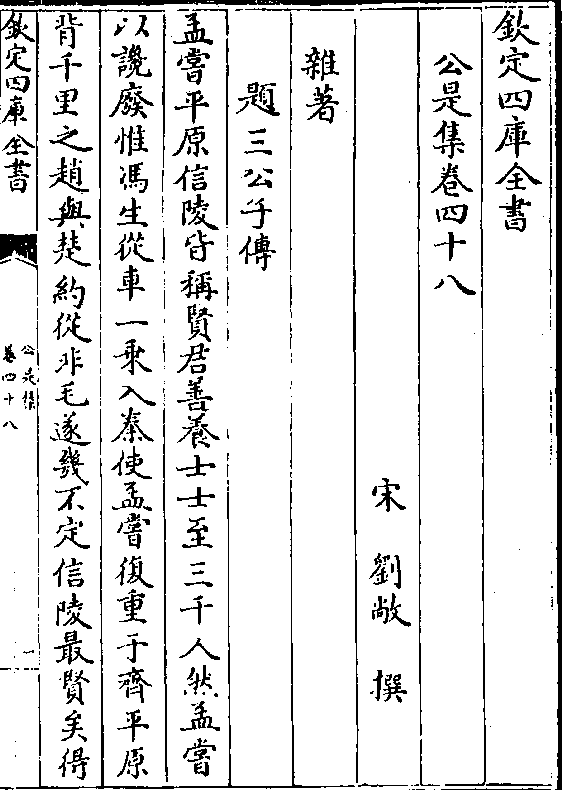 欽定四庫全書
公是集卷四十八
宋 劉敞 撰
雜著
題三公子傳
孟嘗平原信陵皆稱賢君善養士士至三千人然孟嘗
以讒廢惟馮生從車一乘入秦使孟嘗復重于齊平原
背千里之趙與楚約從非毛遂幾不定信陵最賢矣得
欽定四庫全書
公是集
卷四十八
一